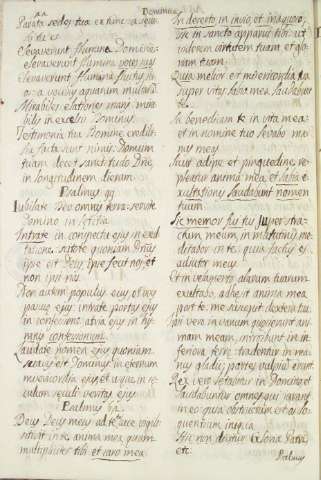 Dominica
Parata sedes tua ex tunc a secu-
lo tu es
elevaverunt flumina Domine
elevaverunt flumina vocem suam
elevaverunt flumina fluctus su-
os a vocibus aquarum multarum
Mirabiles elationes maris mira-
bilis in excelsis Dominus
Testimonia tua Domine credibi-
lia facta sunt nimis Domum
tuam decet sanctitudo Dne
in longitudinem dierum
Psalmus 99
Iubilate Deo omnis terra servite
Domino in letitia
Intrate in conspectu ejus in exul
tatione scitote quoniam Dnus
ipse est Deus ipse fecit nos et
non ipsi nos
populus ejus et oves
pascue ejus intrate portas ejus
in confessione atria ejus in hym-
nis confitemini
Laudate nomen ejus quoniam
suavis est Dominus in eternum
misericordia ejus et usque in ge-
veritas ejus
Psalmus 62
Deus Deus meus ad te de luce vigilo
sitivit in te anima mea quam
multipliciter tibi et caro mea
In deserto in invio et inaquoso
sic in sancto apparui tibi ut
viderem virtutem tuam et glo-
riam tuam
Quia melior est misericordia tua
super vitas labia mea laudabunt
te
Sic benedicam te in vita mea
et in nomine tuo levabo ma-
nus meas
Sicut adipe et pinguedine re-
pleatur anima mea et labia e-
xultationis laudabunt nomen
tuum
Sic memor fui tui super stra-
tum meum in matutinis me-
ditabor in te quia fuisti
adiutor meus
Et in velamento alarum tuarum
exultabo adhesit anima mea
post te me suscepit dextera tua
vero in vanum quesierunt ani-
mam meam introibunt in in-
feriora terre tradentur in ma-
nus gladii partes vulpium erunt
Rex vero letabitur in Domino et
laudabuntur omnes qui iurant
in eo quia obstructum est os lo-
quentium iniqua
Hic non dicitur Gloria Patri
etc.
Psalmus